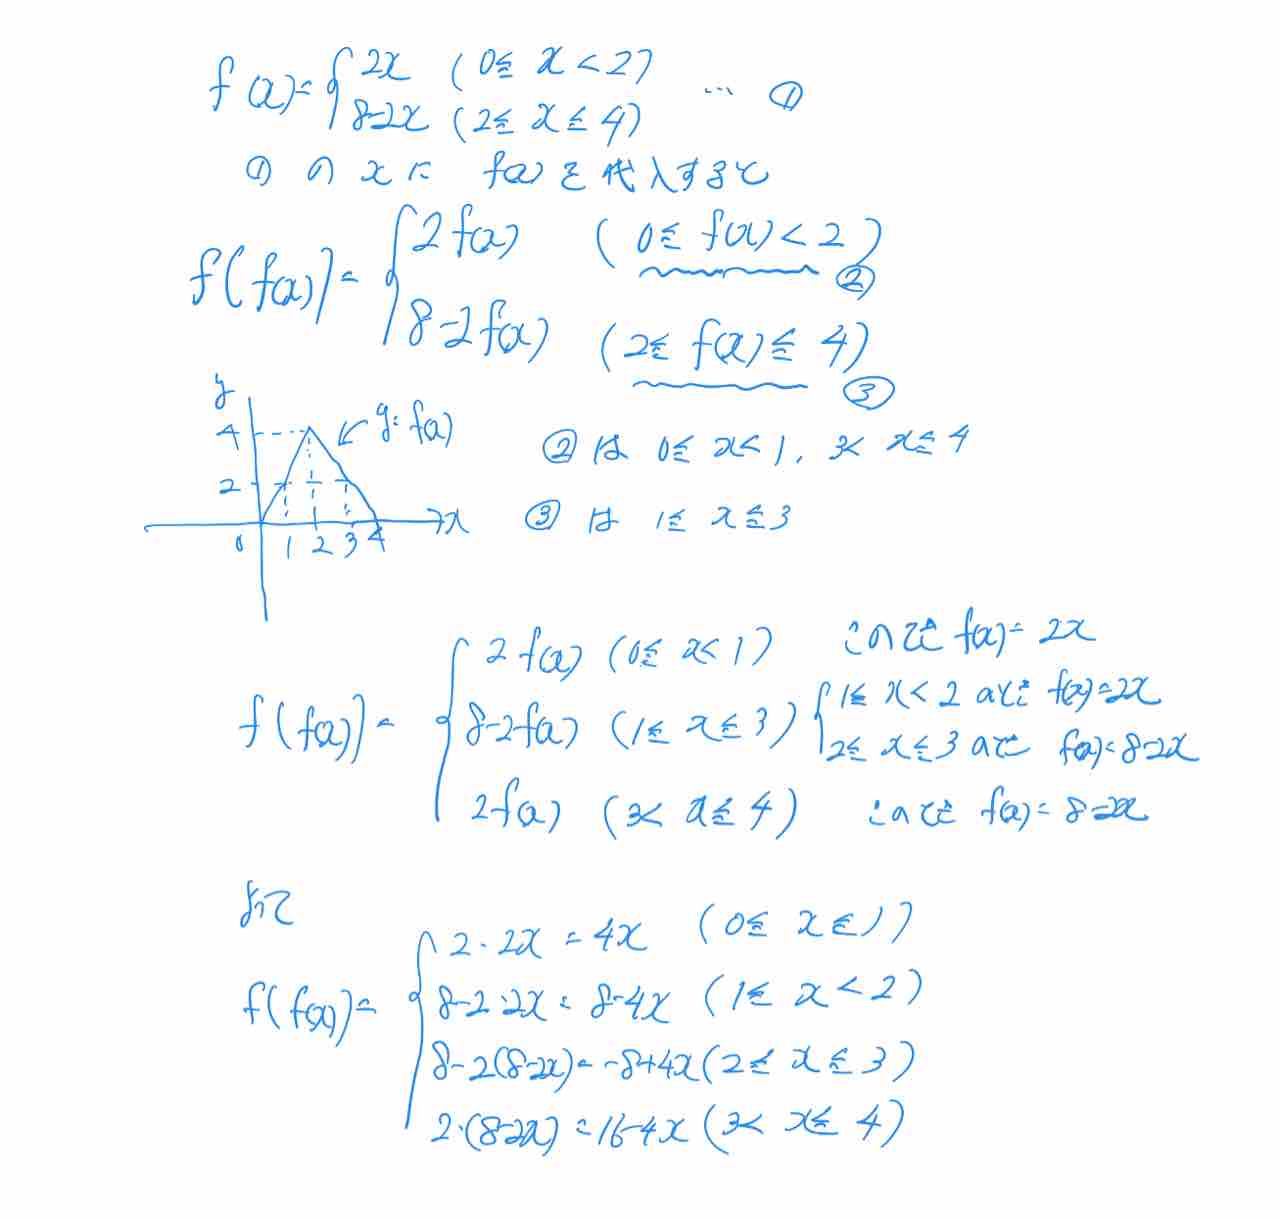 f(x)= { 2x (0≦ x < 2)
8-2x (2≦ x ≦ 4) … ①
① の x に f(x) を 代入すると
f(f(x))= { 2f(x) (0≦ f(x) < 2) ②
8-2f(x) (2≦ f(x) ≦ 4) ③
y
4 y=f(x)
2
0 1 2 3 4 x
② は 0≦ x<1, 3< x≦4
③ は 1≦ x≦3
f(f(x))= { 2f(x) (0≦ x<1) このとき f(x)=2x
8-2f(x) (1≦ x≦3) { 1≦ x<2 のとき f(x)=2x
2≦ x≦3 のとき f(x)=8-2x
2f(x) (3< x≦4) このとき f(x)=8-2x
よって
f(f(x))= { 2・2x = 4x (0≦ x ≦1)
8-2・2x = 8-4x (1≦ x < 2)
8-2(8-2x)=-8+4x (2≦ x ≦ 3)
2・(8-2x)=16-4x (3< x≦ 4)